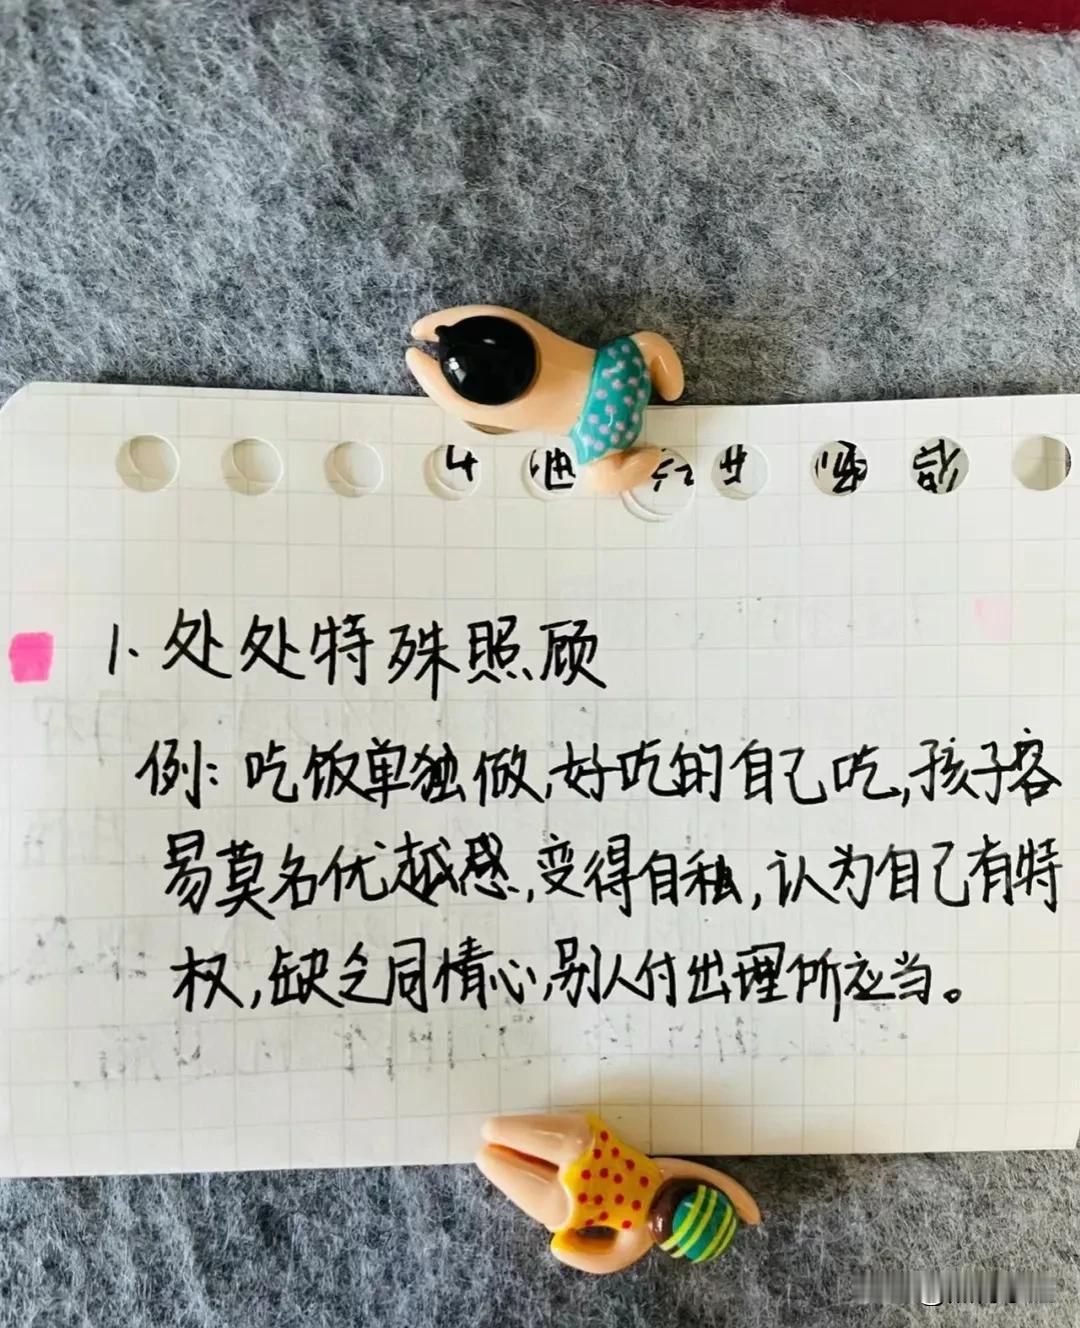 1.处处特殊照顾
例:吃饭单独做,好吃的自己吃,孩子容
易莫名优越感,变得自私,认为自己有特
权,缺乏同情心,别人付出理所应当。